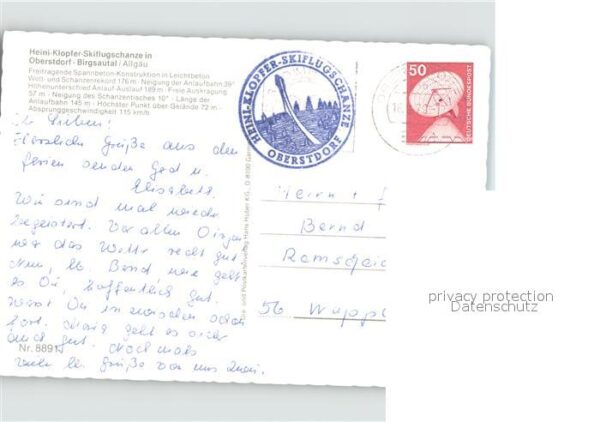 Heini-Klopfer-Skiflugschanze in
Oberstdorf - Birgsautal / Allgäu
Freitragende Spannbeton-Konstruktion in Leichtbeton
Welt- und Schanzenrekord 176 m - Neigung der Anlaufbahn 39°
Höhenunterschied Anlauf-Auslauf 189 m · Freie Auskragung
57 m - Neigung des Schanzentisches 10° - Länge der
Anlaufbahn 145 m - Höchster Punkt über Gelände 72 m -
Absprunggeschwindigkeit 115 km/h
HEINI-KLOPFER-SKIFLUGSCHANZE
OBERSTDORF
50
DEUTSCHE BUNDESPOST
Ihr Lieben!
Herzliche Grüße aus den
Ferien senden Gerd u.
Elisabeth.
Wir sind mal wieder
begeistert. Vor allen Dingen
war das Wetter recht gut.
Nun, lb. Bernd wie geht
es Dir, hoffentlich gut.
Warst Du inzwischen schon
fort.
auch gut. Nochmals
viele lb. Grüße von uns Zwei.
Bernd
Ramscheid
56 Wuppe
Nr. 8891
privacy protection
Datenschutz